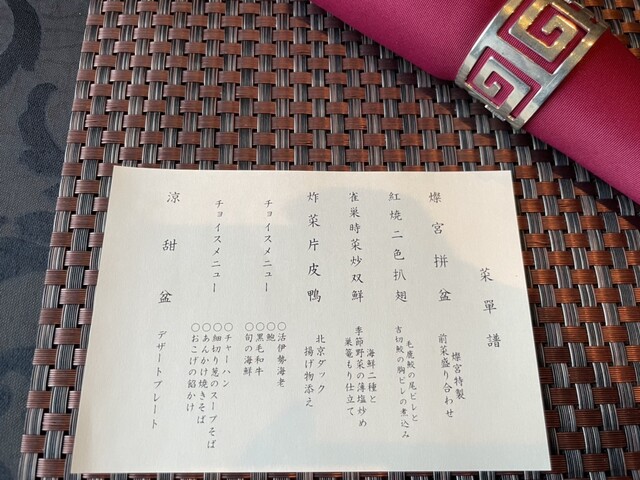 菜單譜
燦宮拼盆
燦宮特製
前菜盛り合わせ
紅焼二色扒翅
毛鹿鮫の尾ビレと
吉切鮫の胸ビレの煮込み
雀巣時菜炒双鮮
海鮮二種と
季節野菜の薄塩炒め
巣篭もり仕立て
炸菜片皮鴨
北京ダック
揚げ物添え
チョイスメニュー
〇活伊勢海老
〇鮑
〇黒毛和牛
〇旬の海鮮
チョイスメニュー
〇チャーハン
〇細切り葱のスープそば
〇あんかけ焼きそば
〇おこげの餡かけ
涼甜盆
デザートプレート